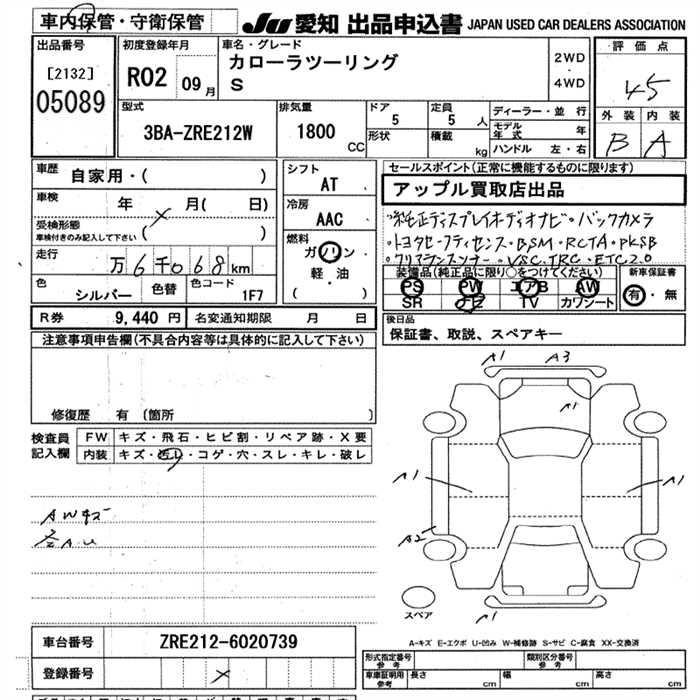 車内保管・守衛保管
JU 愛知 出品申込書 JAPAN USED CAR DEALERS ASSOCIATION
出品番号
[2132]
05089
初度登録年月
R02 09月
車名・グレード
カローラツーリング
S
2WD
・
4WD
評価点
4.5
外装 内装
B A
型式
3BA-ZRE212W
排気量
1800
CC
ドア
5
形状
定員
5 人
積載
kg
ディーラー・並 行
モデル年式 年
ハンドル 左・右
車歴
自家用・( )
車検
年 月( 日)
受検形態
車検付きのみ記入して下さい ( )
走行
万6千068km
色
シルバー
色替
色コード
1F7
シフト
AT
冷房
AAC
燃料
ガソリン
・
軽・油
( )
セールスポイント(正常に機能するものに限ります)
アップル買取店出品
純正ディスプレイオーディオナビ・バックカメラ
・トヨタセーフティセンス・BSM・RCTA・PKSB
・クリアランスソナー・VSC・TRC・ETC2.0
装備品(純正品に限り○をつけてください)
PS PW エアB AW
SR ナビ TV カワシート
新車保証書
有・無
R券 9,440 円 名変通知期限 月 日
後日品
保証書、取説、スペアキー
注意事項申告欄(不具合内容等は具体的に記入して下さい)
修復歴 有 (箇所 )
検査員
記入欄
FW キズ・飛石・ヒビ割・リペア跡・X要
内装 キズ・汚レ・コゲ・穴・スレ・キレ・破レ
AWキズ
A1 A3
A1
A1 A1
A2
A1
スペア
A-キズ E-エクボ U-凹み W-補修跡 S-サビ C-腐食 XX-交換済
車台番号 ZRE212-6020739
登録番号
形式指定番号
参考
類別区分番号
参考
車庫証明用
参考
長さ cm 幅 cm 高さ cm